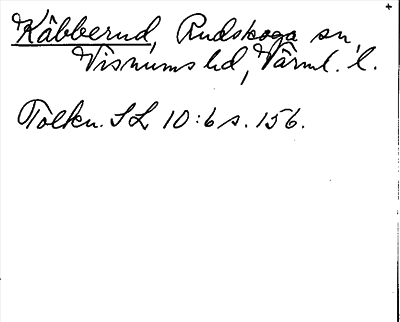 Käbberud, Rudskoga sn,
Visnums hd, Värml. l.
Tolkn. SL 10:6 s. 156.